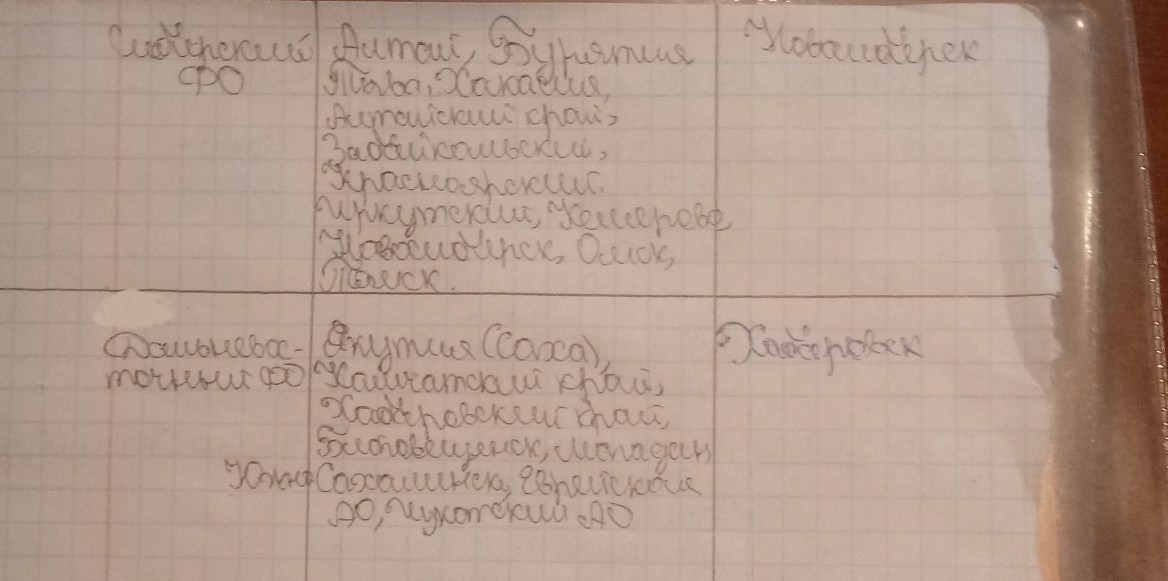 Сибирский
ФО
Алтай, Бурятия
Тыва, Хакасия,
Алтайский край,
Забайкальский,
Красноярский.
Иркутский, Кемерово,
Новосибирск, Омск,
Томск.
Новосибирск
Дальневос-
точный ФО
Якутия (Саха),
Камчатский край,
Хабаровский край,
Благовещенск, Магадан
Южно Сахалинск, Еврейская
АО, Чукотский АО
Хабаровск